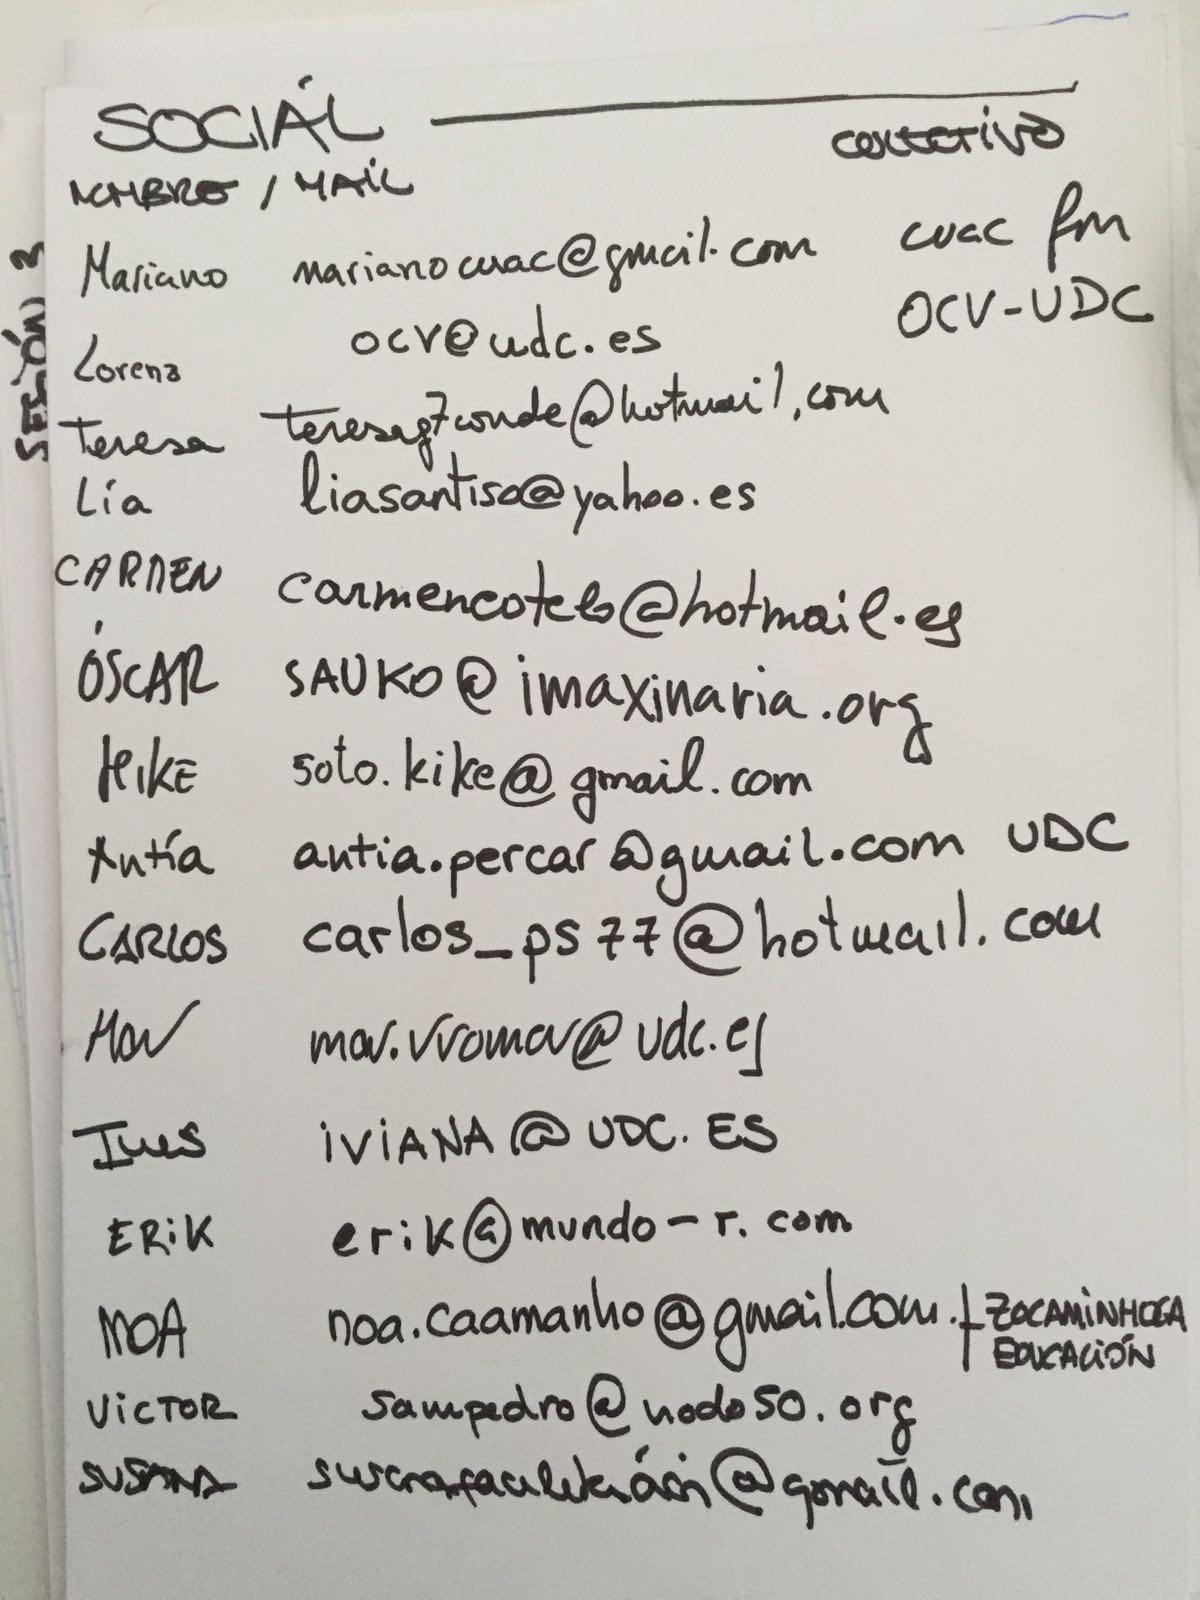 SOCIÁL
NOMBRE / MAIL COLECTIVO
Mariano marianocuac@gmail.com cuac fm
Lorena ocv@udc.es OCV-UDC
Teresa teresag7conde@hotmail.com
Lía liasantiso@yahoo.es
CARMEN carmencotelo@hotmail.es
ÓSCAR SAUKO@imaxinaria.org
KIKE soto.kike@gmail.com
Antía antia.percar@gmail.com UDC
CARLOS carlos_ps77@hotmail.com
Mar
Ines iVIANA@UDC.ES
ERIK erik@mundo-r.com
NOA noa.caamanho@gmail.com. ZOCAMINHOCA
EDUCACIÓN
VICTOR sampedro@nodo50.org
SUSANA
SESIÓN 2